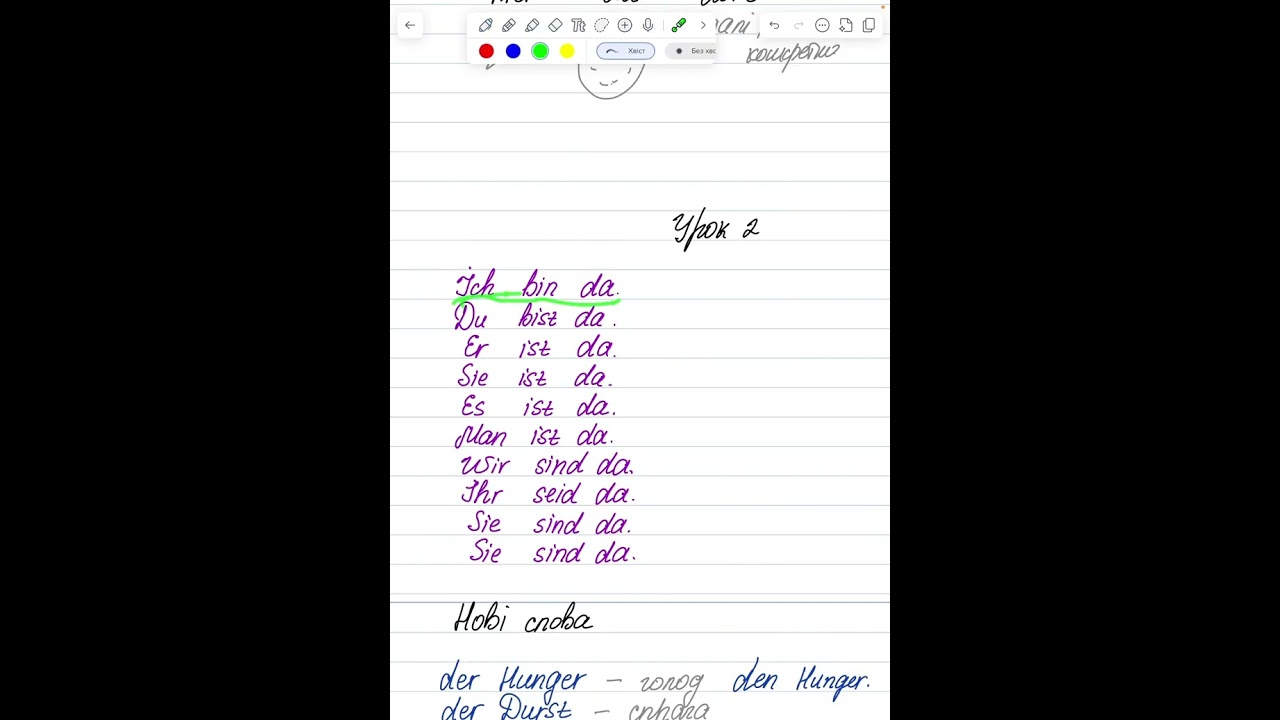 Хвіст Без хвс
конкретно
Урок 2
Ich bin da.
Du bist da.
Er ist da.
Sie ist da.
Es ist da.
Man ist da.
Wir sind da.
Ihr seid da.
Sie sind da.
Sie sind da.
Нові слова
der Hunger – голод den Hunger.
der Durst – спрага